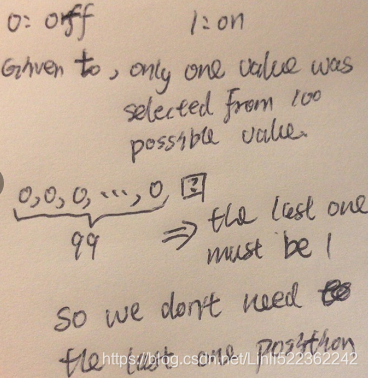 0: off 1: on
Given to, only one value was
selected from 100
possible value.
0,0,0, ..., 0 ?
99 ⇒ the last one
must be 1
so we don't need to
the last one position
https://blog.csdn.net/Linli522362242